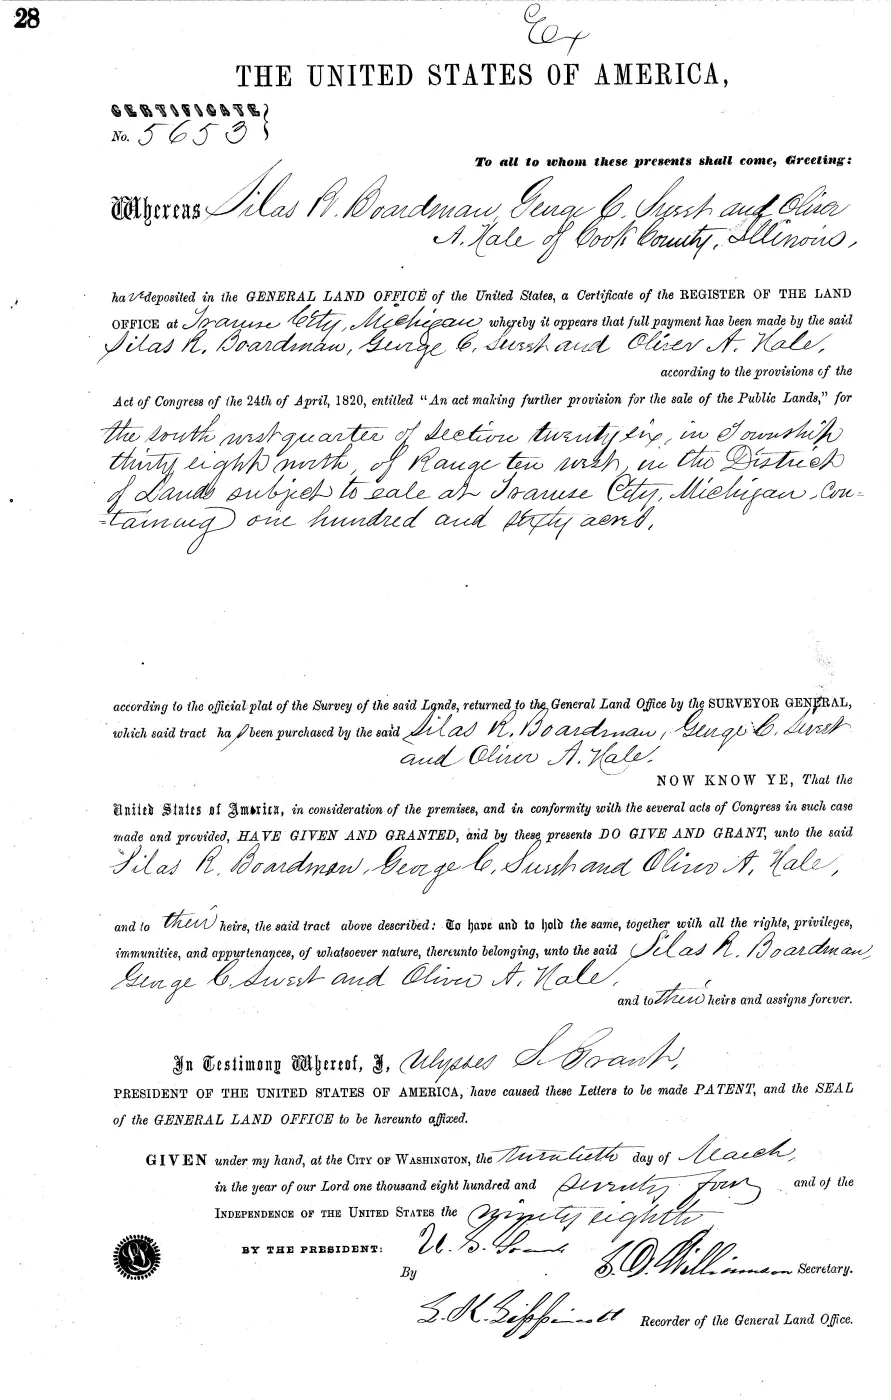 28
Ex
THE UNITED STATES OF AMERICA,
CERTIFICATE
No. 5653
To all to whom these presents shall come, Greeting:
Whereas Silas R. Boardman, George C. Sweet and Oliver
A. Hale of Cook County, Illinois,
have deposited in the GENERAL LAND OFFICE of the United States, a Certificate of the REGISTER OF THE LAND
OFFICE at Traverse City, Michigan whereby it appears that full payment has been made by the said
Silas R. Boardman, George C. Sweet and Oliver A. Hale,
according to the provisions of the
Act of Congress of the 24th of April, 1820, entitled "An act making further provision for the sale of the Public Lands," for
the south west quarter of section twenty six, in Township
thirty eight north, of Range ten west, in the District
of Lands subject to sale at Traverse City, Michigan, con=
=taining one hundred and sixty acres,
according to the official plat of the Survey of the said Lands, returned to the General Land Office by the SURVEYOR GENERAL,
which said tract ha been purchased by the said Silas R. Boardman, George C. Sweet
and Oliver A. Hale.
NOW KNOW YE, That the
United States of America, in consideration of the premises, and in conformity with the several acts of Congress in such case
made and provided, HAVE GIVEN AND GRANTED, and by these presents DO GIVE AND GRANT, unto the said
Silas R. Boardman, George C. Sweet and Oliver A. Hale,
and to their heirs, the said tract above described: To have and to hold the same, together with all the rights, privileges,
immunities, and appurtenances, of whatsoever nature, thereunto belonging, unto the said Silas R. Boardman,
George C. Sweet and Oliver A. Hale,
and to their heirs and assigns forever.
In Testimony Whereof, I, Ulysses S. Grant,
PRESIDENT OF THE UNITED STATES OF AMERICA, have caused these Letters to be made PATENT, and the SEAL
of the GENERAL LAND OFFICE to be hereunto affixed.
GIVEN under my hand, at the CITY OF WASHINGTON, the twentieth day of March,
in the year of our Lord one thousand eight hundred and seventy four, and of the
INDEPENDENCE OF THE UNITED STATES the ninety eighth
BY THE PRESIDENT: U. S. Grant
By S. D. Williamson Secretary.
L. K. Lippincott Recorder of the General Land Office.